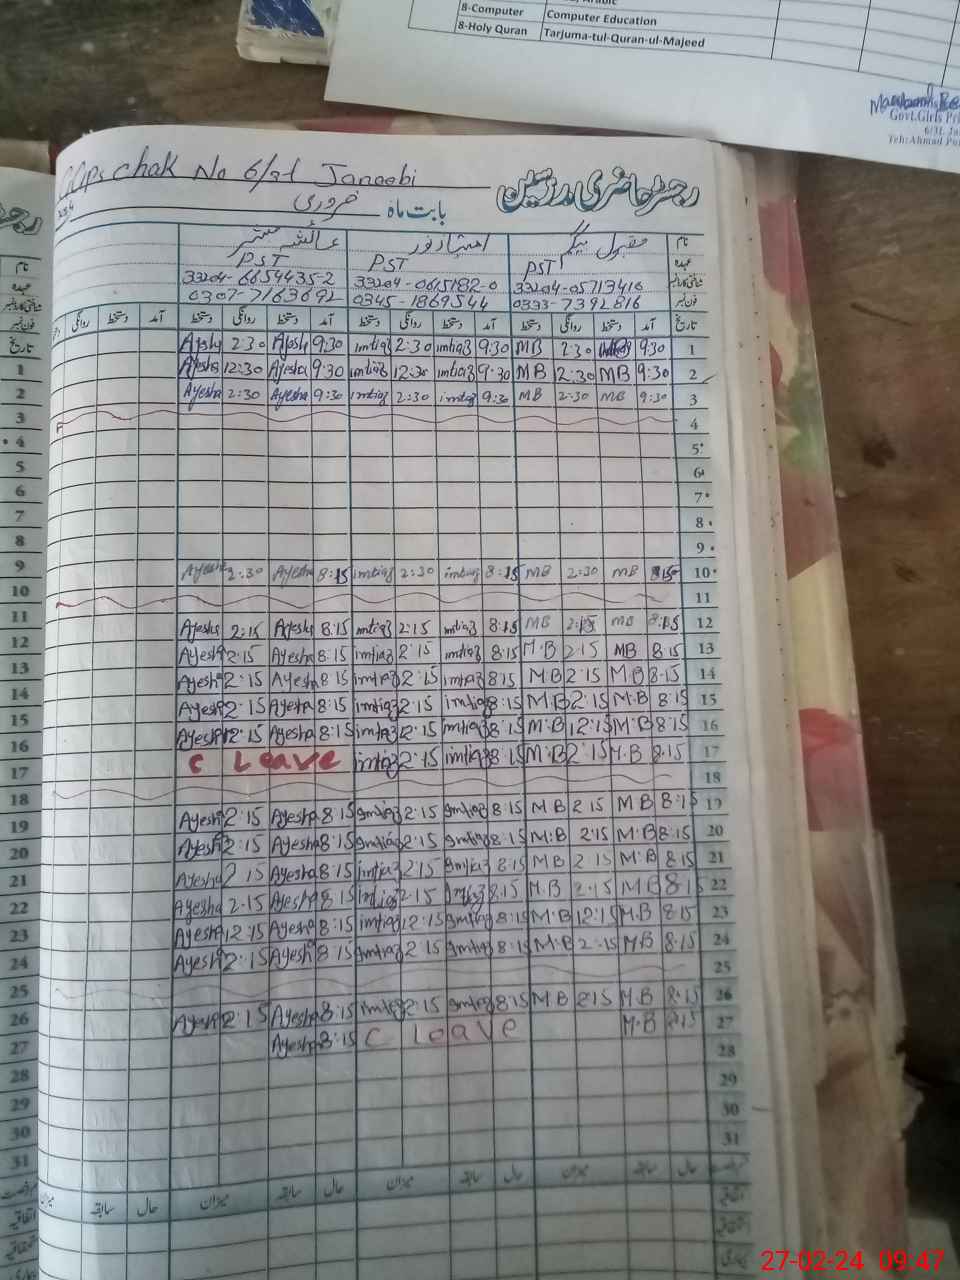 8-Computer Computer Education
8-Holy Quran Tarjuma-tul-Quran-ul-Majeed
Govt.Girls
6/3L
Teh:Ahmad
GGPS Chak No 6/3L Janoobi
رجسٹر حاضری مدرسین
بابت ماہ فروری
نام مقبول بیگم امتیاز نور عائشہ
عہدہ PST PST PST
33204-0571341 33204-0615182-0 33204-6654435-2
فون نمبر 0333-7392816 0345-1869544 0307-7163692
تاریخ آمد دستخط روانگی دستخط آمد دستخط روانگی دستخط آمد دستخط روانگی دستخط آمد دستخط روانگی
1 9:30 2:30 MB 9:30 imtiaz 2:30 imtiaz 9:30 Ayesha 2:30 Ayesha
2 9:30 MB 2:30 MB 9:30 imtiaz 12:30 imtiaz 9:30 Ayesha 12:30 Ayesha
3 9:30 MB 2:30 MB 9:30 imtiaz 2:30 imtiaz 9:30 Ayesha 2:30 Ayesha
4
5
6
7
8
9
10 8:15 MB 2:30 MB 8:15 imtiaz 2:30 imtiaz 8:15 Ayesha 2:30 Ayesha
11
12 8:15 MB 2:15 MB 8:15 imtiaz 2:15 imtiaz 8:15 Ayesha 2:15 Ayesha
13 8:15 MB 2:15 M.B 8:15 imtiaz 2:15 imtiaz 8:15 Ayesha 2:15 Ayesha
14 8:15 M.B 2:15 MB 8:15 imtiaz 2:15 imtiaz 8:15 Ayesha 2:15 Ayesha
15 8:15 M.B 2:15 M.B 8:15 imtiaz 2:15 imtiaz 8:15 Ayesha 2:15 Ayesha
16 8:15 M.B 12:15 M.B 8:15 imtiaz 12:15 imtiaz 8:15 Ayesha 12:15 Ayesha
17 8:15 M.B 2:15 M.B 8:15 imtiaz 2:15 imtiaz C Leave
18
19 8:15 MB 2:15 M.B 8:15 imtiaz 2:15 imtiaz 8:15 Ayesha 2:15 Ayesha
20 8:15 M.B 2:15 M.B 8:15 imtiaz 2:15 imtiaz 8:15 Ayesha 2:15 Ayesha
21 8:15 M.B 2:15 MB 8:15 imtiaz 2:15 imtiaz 8:15 Ayesha 2:15 Ayesha
22 8:15 MB 2:15 M.B 8:15 imtiaz 2:15 imtiaz 8:15 Ayesha 2:15 Ayesha
23 8:15 M.B 12:15 M.B 8:15 imtiaz 12:15 imtiaz 8:15 Ayesha 12:15 Ayesha
24 8:15 M.B 2:15 M.B 8:15 imtiaz 2:15 imtiaz 8:15 Ayesha 2:15 Ayesha
25
26 8:15 M.B 2:15 M.B 8:15 imtiaz 2:15 imtiaz 8:15 Ayesha 2:15 Ayesha
27 8:15 M.B C Leave 8:15 Ayesha
28
29
30
31
حال سابقہ میزان حال سابقہ میزان حال سابقہ میزان حال سابقہ میزان
27-02-24 09:47